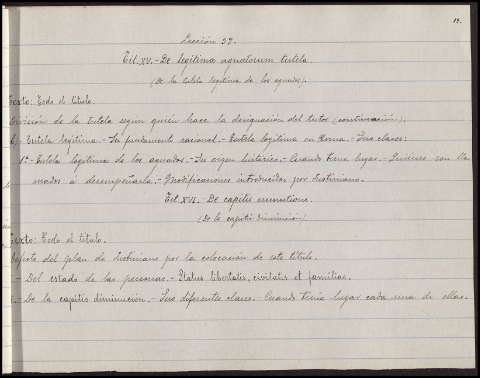 Lección 37.
Tit. XV. - De legitima agnatorum tutela.
(De la tutela legítima de los agnados).
Texto: Todo el título.
División de la tutela segun quién hace la designación del tutor (continuación).
Tutela legítima. - Su fundamento racional. - Tutela legítima en Roma. - Sus clases:
1º - Tutela legítima de los agnados. - Su origen histórico. - Cuando tiene lugar. - Quienes son lla
mados á desempeñarla. - Modificaciones introducidas por Justiniano.
Tit. XVI. De capitis minutione.
(De la capitis diminución).
Texto: Todo el título.
Defecto del plan de Justiniano por la colocación de este título.
- Del estado de las personas. - Status libertatis, civitatis et familiae.
- De la capitis diminución. - Sus diferentes clases. - Cuando tenia lugar cada una de ellas.